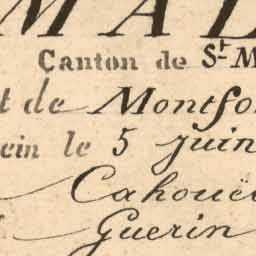 MAL
Canton de St M
t de Montfo
ein le 5 juin
Cahoue
Guerin